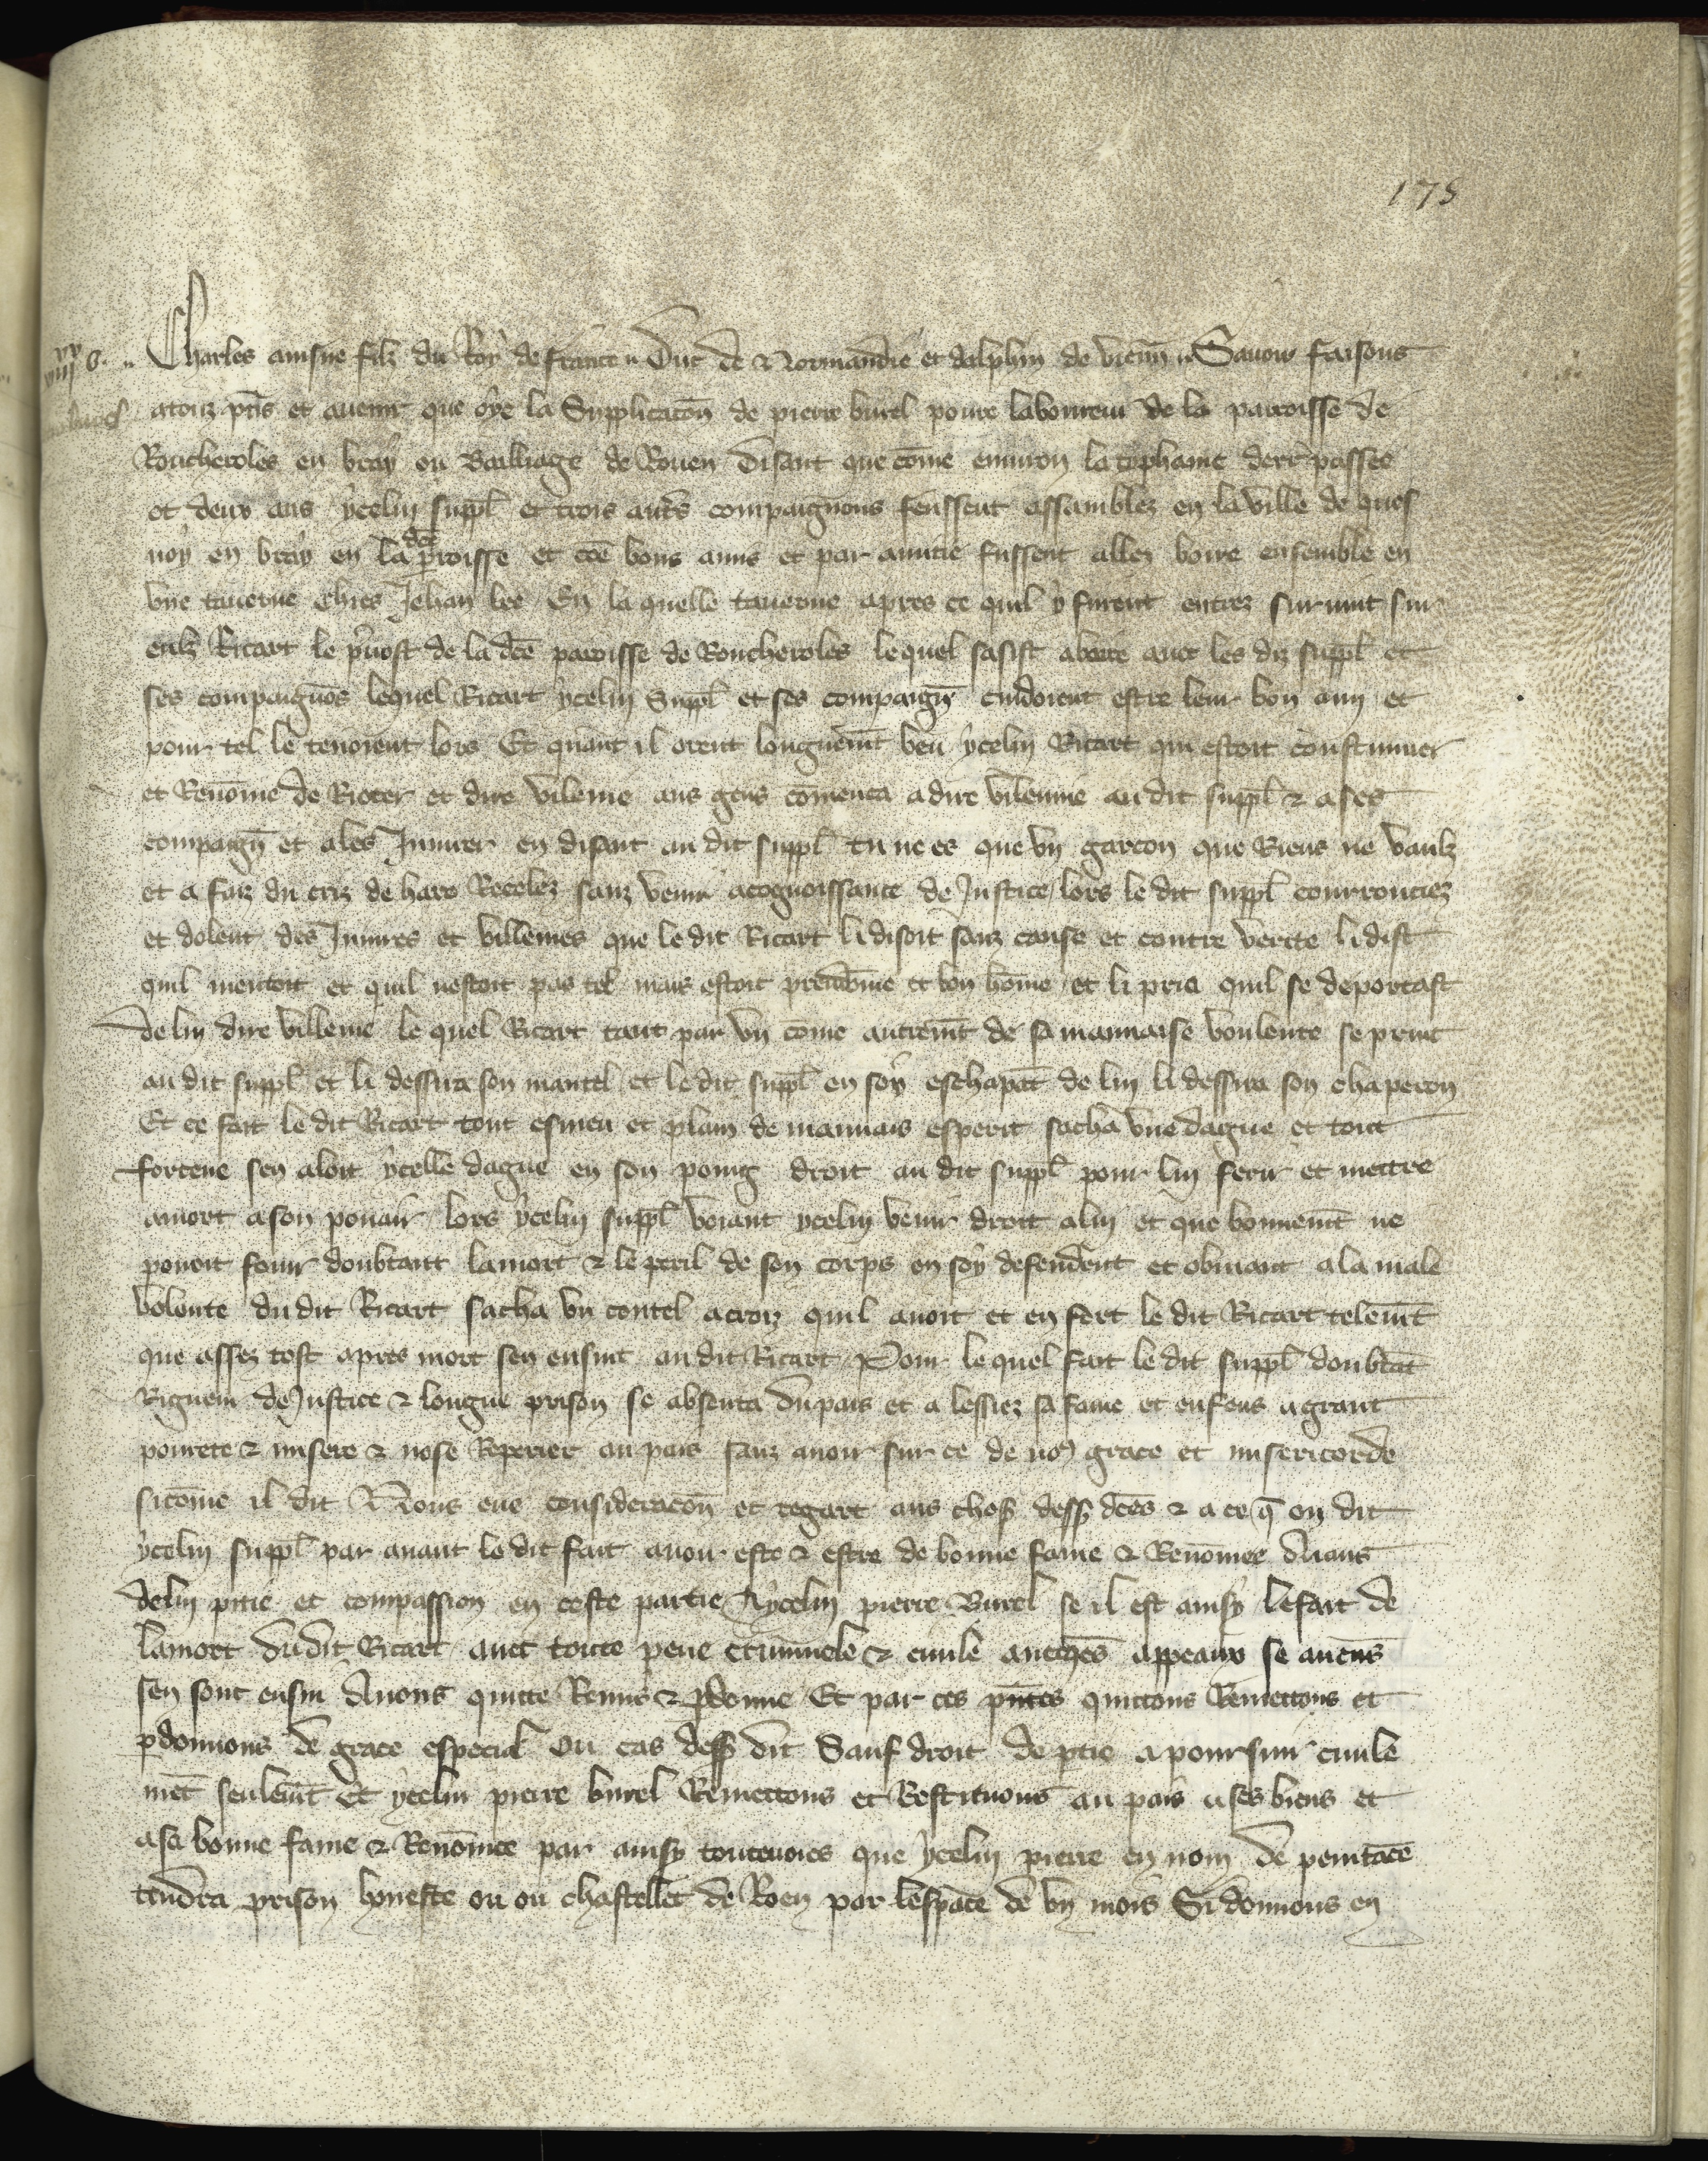 175
Charles ainsne filz du Roy de france Duc de Normandie et dalphin de vienn̄ Savoir faisons
a touz p̄ns et avenir que oye la Supplicacōn de pierre burel poure laboureur de la parroisse de
Roncheroles en bray ou Bailliage de Rouen disant que cōme environ la tiphaine derr̄ passee
ot deux ans ycelui suppl̄ et trois aut̄s compaignons feussent assamblez en la ville de ques
noy en bray en la dc̄e p̄roisse et cōe bons amis et par amitie fussent allez boire ensemble en
une taverne chies Jehan lee En la quelle taverne apres ce quil y furent entrez survint sur
eulz Ricart le p̄vost de la dc̄e paroisse de Roncheroles le quel sasist a boire avec les diz suppl̄ et
ses compaignōs lequel Ricart ycelui Suppl̄ et ses compaign̄ cuidoient estre leur bon ami et
pour tel le tenoient lors Et quant il orent longuem̄t beu ycelui Ricart qui estoit coustumier
et Renōme de Rioter et dire vilenie aus gens cōmenca a dire vilennie au dit suppl̄ & a ses
compaign̄ et a les Jniurer en disant au dit suppl̄ tu ne es que un garcon que Riens ne vaulz
et a faiz du criz de haro Recelez sanz venir a cognoissance de Justice lors le dit suppl̄ courrouciez
et dolent des Jniures et villenies que le dit Ricart li disoit sanz cause et contre verite li dist
quil mentoit et quil nestoit pas tel mais estoit preudōme et bon hōme et li pria quil se deportast
de lui dire villenie le quel Ricart tant par vin cōme autrem̄t de sa mauvaise voulente se print
au dit suppl̄ et li dessira son mantel et le dit suppl̄ en soy eschapāt de lui li dessira son chaperon
Et ce fait le dit Ricart tout esmeu et plain de mauvais esperit sacha une dague et tout
forcene sen aloit ycelle dague en son poing droit au dit suppl̄ pour lui ferir et mettre
a mort a son povair lors ycelui suppl̄ voiant ycelui venir droit a lui et que bonnem̄t ne
povoit fouir doubtant la mort & le peril de son corps en soy defendent et obviant a la male
volente du dit Ricart sacha un coutel a croiz quil avoit et en fert le dit Ricart telem̄t
que assez tost apres mort sen ensuit au dit Ricart Pour le quel fait le dit suppl̄ doubtāt
Rigueur de Justice & longue prison se absenta du pais et a lessiez sa fame et enfens a grant
pourete & misere & nose Reperier au pais sanz avoir sur ce de nous grace et misericorde
sicōme il dit Nous eue consideracōn et regart aus chos̄ dess̄ dc̄es & a ce q̄ on dit
ycelui suppl̄ par avant le dit fait avoir este & estre de bonne fame & Renōmee Aians
de lui pitie et compassion en ceste partie A ycelui pierre Burel se il est ainsy le fait de
la mort du dit Ricart avec toute peine criminele & civile appeaux se aucuns
sen sont ensui Avons quitte Remis & p̄donne Et par ces p̄ntes quittons Remettons et
p̄donnons de grace especial ou cas dess̄ dit Sauf droit de p̄tie a poursuir civile
mēt seulem̄t Et ycelui pierre burel Remettons et Restituons au pais a ses biens et
a sa bonne fame & Renōmee par ainsy toutevoies que ycelui pierre en nom de penitāce
tendra prison honeste ou ou chastellet de Roen par lespace de un mois Si donnons en